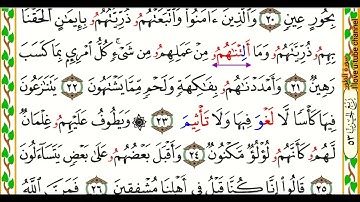 بِحُورٍ عِينٍ ٢٠ وَالَّذِينَ ءَامَنُوا وَاتَّبَعَتْهُمُۥ ذُرِّيَّتُهُمُۥ بِإِيمَٰنٍ أَلْحَقْنَا
بِهِمُۥ ذُرِّيَّتَهُمُۥ وَمَا أَلِتْنَٰهُمُۥ مِنْ عَمَلِهِمُۥ مِن شَيْءٍ كُلُّ امْرِئٍ بِمَا كَسَبَ
رَهِينٌ ٢١ وَأَمْدَدْنَٰهُمُۥ بِفَٰكِهَةٍ وَلَحْمٍ مِمَّا يَشْتَهُونَ ٢٢ يَتَنَٰزَعُونَ
فِيهَا كَأْسًا لَا لَغْوَ فِيهَا وَلَا تَأْثِيمَ ٢٣ وَيَطُوفُ عَلَيْهِمُۥ غِلْمَانٌ
لَهُمُۥ كَأَنَّهُمُۥ لُؤْلُؤٌ مَكْنُونٌ ٢٤ وَأَقْبَلَ بَعْضُهُمُۥ عَلَىٰ بَعْضٍ يَتَسَاءَلُونَ
٢٥ قَالُوا إِنَّا كُنَّا قَبْلُ فِي أَهْلِنَا مُشْفِقِينَ ٢٦ فَمَنَّ اللَّهُ
٥٢